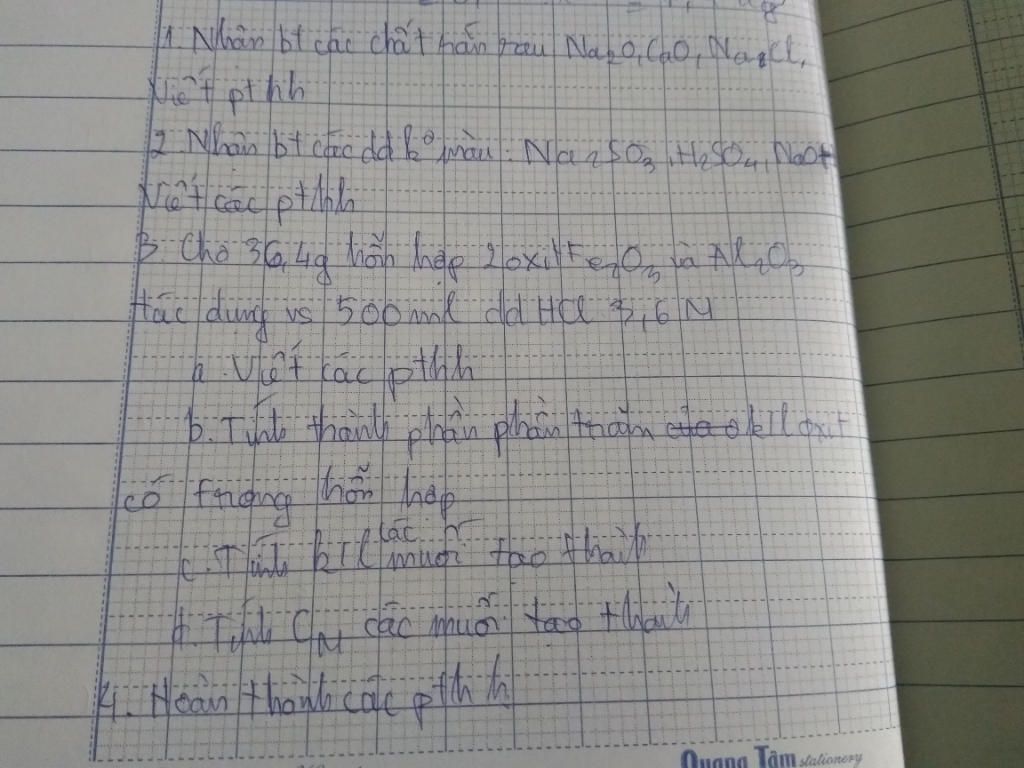 1. Nhận bt các chất rắn sau Na2O, CaO, NaCl,
Viết pthh
2. Nhận bt các dd k° màu: Na2SO3, H2SO4, NaOH
Viết các pthh
3. Cho 36,4g hỗn hợp 2 oxit Fe2O3 và Al2O3
tác dụng vs 500ml dd HCl 3,6 M
a. Viết các pthh
b. Tính thành phần phần trăm ktl oxit
có trong hỗn hợp
c. Tính ktl các muối tạo thành
d. Tính CM các muối tạo thành
4. Hoàn thành các pthh
Quang Tâm stationery